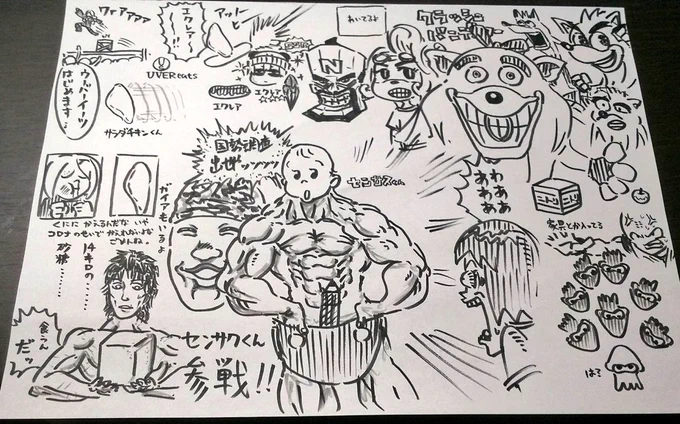 ワァアアアア
エクレアー!!
アットーと
UVEReats
ウーバーイーツ
はじめます…
サラダチキンくん
エクレア
エクレア
☆☆☆☆
N
あいてるよ
クラッシュ
バンディクー
国勢調査
出せッッッッ
センサスくん
わああ
あああ
ああ
ニトリ
ニトリ
家具とか入ってる
ガイアもいるよ
くにに かえるんだな いや
コロナのせいで かえれないな
ごめんね。
14キロの……
砂糖……
食らん
だッ
センサクくん
参戦!!
は?